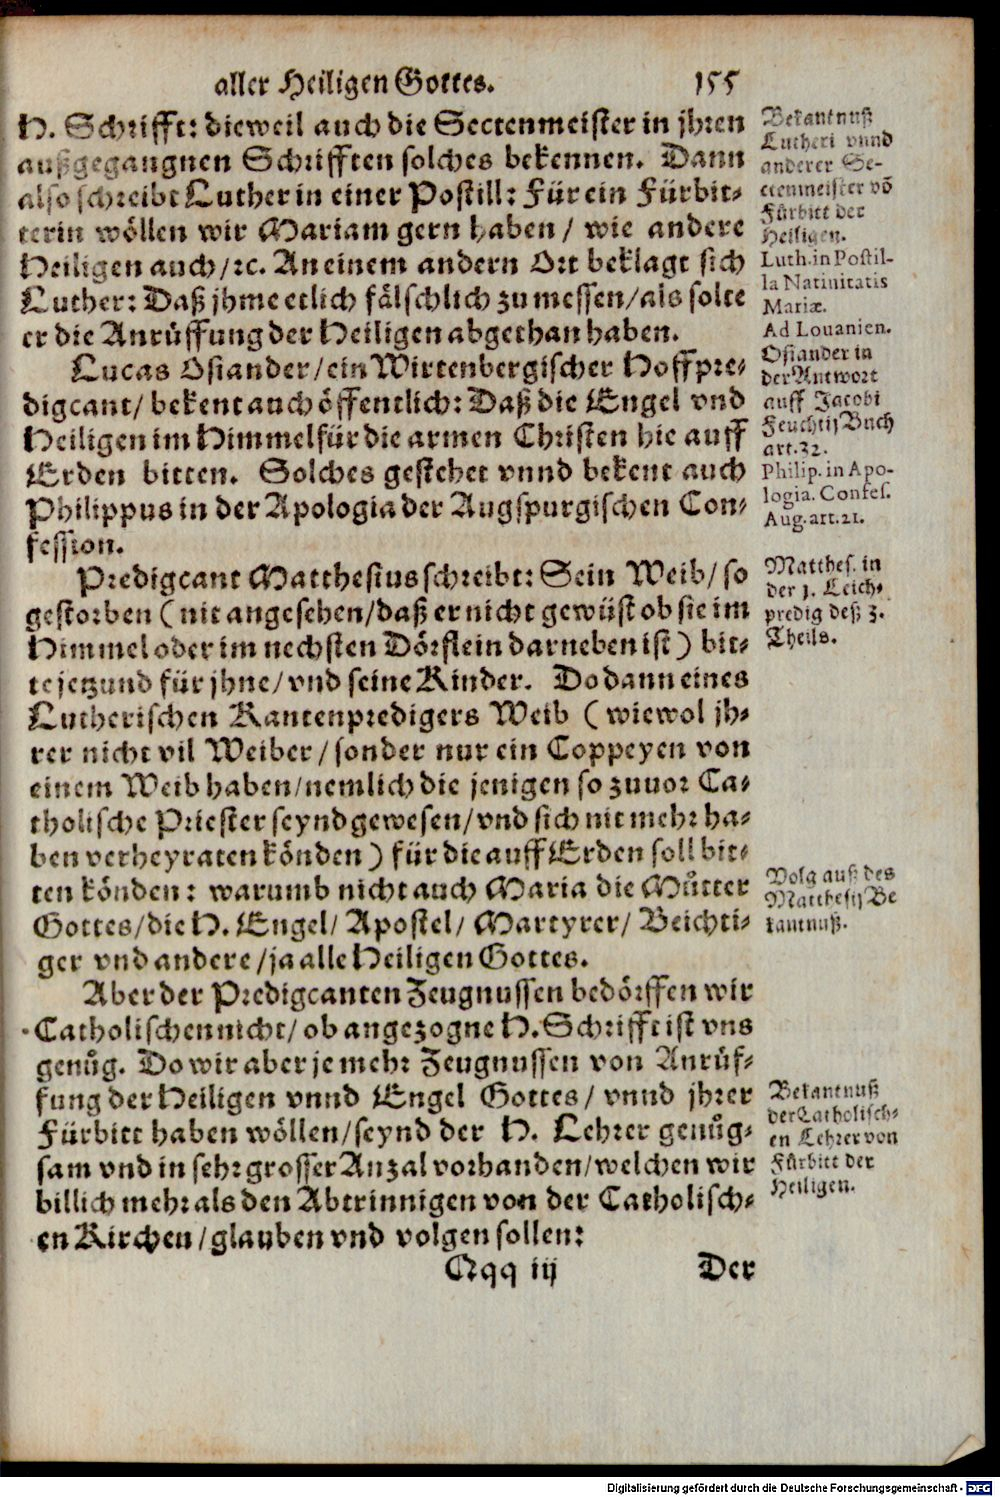 aller Heiligen Gottes. 155
H. Schrifft: dieweil auch die Sectenmeister in jhren
außgegangnen Schrifften solches bekennen. Dann
also schreibt Luther in einer Postill: Für ein Fürbit-
terin wöllen wir Mariam gern haben / wie andere
Heiligen auch /ꝛc. An einem andern Ort beklagt sich
Luther: Daß jhme etlich fälschlich zu messen/als solte
er die Anrüffung der Heiligen abgethan haben.
Lucas Osiander/ein Wirtenbergischer Hoffpre-
digcant/ bekent auch öffentlich: Daß die Engel vnd
Heiligen im Himmel für die armen Christen hie auff
Erden bitten. Solches gestehet vnnd bekent auch
Philippus in der Apologia der Augspurgischen Con-
fession.
Predigcant Matthesius schreibt: Sein Weib/ so
gestorben ( nit angesehen/daß er nicht gewüst ob sie im
Himmel oder im nechsten Dörflein darneben ist ) bit-
te jetzund für jhne/ vnd seine Kinder. Do dann eines
Lutherischen Kantenpredigers Weib ( wiewol jh-
rer nicht vil Weiber/ sonder nur ein Coppeyen von
einem Weib haben/nemlich die jenigen so zuuor Ca-
tholische Priester seynd gewesen/vnd sich nit mehr ha-
ben verheyraten könden ) für die auff Erden soll bit-
ten könden: warumb nicht auch Maria die Můtter
Gottes/die H. Engel/ Apostel/ Martyrer/ Beichti-
ger vnd andere /ja alle Heiligen Gottes.
Aber der Predigcanten Zeugnussen bedörffen wir
Catholischen nicht/ ob angezogne H. Schrifft ist vns
genůg. Do wir aber je mehr Zeugnussen von Anrüf-
fung der Heiligen vnnd Engel Gottes/ vnnd jhrer
Fürbitt haben wöllen/seynd der H. Lehrer genůg-
sam vnd in sehr grosser Anzal vorhanden/welchen wir
billich mehr als den Abtrinnigen von der Catholisch-
en Kirchen /glauben vnd volgen sollen:
Qqq iij Der
Bekantnuß
Lutheri vnnd
anderer Se-
ctenmeister võ
Fürbitt der
Heiligen.
Luth. in Postil-
la Natiuitatis
Mariæ.
Ad Louanien.
Osiander in
der Antwort
auff Jacobi
Feuchtij Buch
art. 32.
Philip. in Apo-
logia. Confes.
Aug. art. 21.
Matthes. in
der 1. Leich-
predig deß 3.
Theils.
Volg auß des
Matthesij Be
kantnuß.
Bekantnuß
der Catholisch-
en Lehrer von
Fürbitt der
Heiligen.
Digitalisierung gefördert durch die Deutsche Forschungsgemeinschaft - DFG